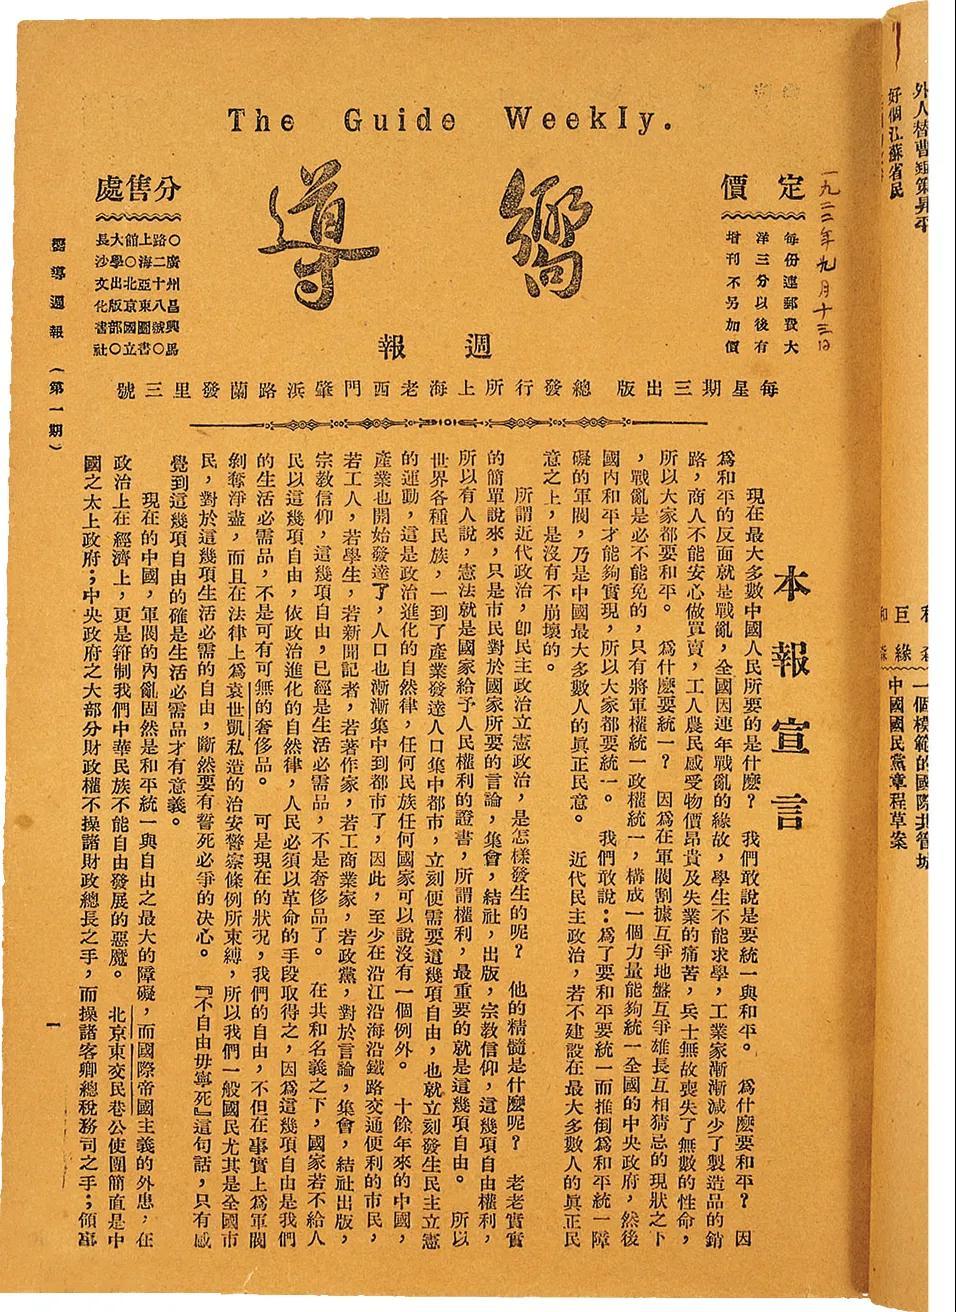 The Guide Weekly.
嚮導
週報
定價
每份連郵費大
洋三分以後有
增刊不另加價
一九二二年九月十三日
分售處
○廣州昌興馬
路二十八號○
上海亞東圖書
館○北京國立
大學出版部○
長沙文化書社
每星期三出版 總發行所上海老西門肇浜路蘭發里三號
本報宣言
現在最大多數中國人民所要的是什麽? 我們敢說是要統一與和平。 爲什麽要和平? 因
爲和平的反面就是戰亂,全國因連年戰亂的緣故,學生不能求學,工業家漸漸減少了製造品的銷
路,商人不能安心做買賣,工人農民感受物價昂貴及失業的痛苦,兵士無故喪失了無數的性命,
所以大家都要和平。 爲什麽要統一? 因爲在軍閥割據互爭地盤互爭雄長互相猜忌的現狀之下
,戰亂是必不能免的,只有將軍權統一政權統一,構成一個力量能夠統一全國的中央政府,然後
國內和平才能夠實現,所以大家都要統一。 我們敢說:爲了要和平要統一而推倒爲和平統一障
礙的軍閥,乃是中國最大多數人的眞正民意。 近代民主政治,若不建設在最大多數人的眞正民
意之上,是沒有不崩壞的。
所謂近代政治,卽民主政治立憲政治,是怎樣發生的呢? 他的精髓是什麽呢? 老老實實
的簡單說來,只是市民對於國家所要的言論,集會,結社,出版,宗教信仰,這幾項自由權利,
所以有人說,憲法就是國家給予人民權利的證書,所謂權利,最重要的就是這幾項自由。 所以
世界各種民族,一到了產業發達人口集中都市,立刻便需要這幾項自由,也就立刻發生民主立憲
的運動,這是政治進化的自然律,任何民族任何國家可以說沒有一個例外。 十餘年來的中國,
產業也開始發達了,人口也漸漸集中到都市了,因此,至少在沿江沿海沿鐵路交通便利的市民,
若工人,若學生,若新聞記者,若著作家,若工商業家,若政黨,對於言論,集會,結社出版,
宗教信仰,這幾項自由,已經是生活必需品,不是奢侈品了。 在共和名義之下,國家若不給人
民以這幾項自由,依政治進化的自然律,人民必須以革命的手段取得之,因爲這幾項自由是我們
的生活必需品,不是可有可無的奢侈品。 可是現在的狀况,我們的自由,不但在事實上爲軍閥
剝奪淨盡,而且在法律上爲袁世凱私造的治安警察條例所束縛,所以我們一般國民尤其是全國市
民,對於這幾項生活必需的自由,斷然要有誓死必爭的决心。 『不自由毋寧死』這句話,只有感
覺到這幾項自由的確是生活必需品才有意義。
現在的中國,軍閥的內亂固然是和平統一與自由之最大的障礙,而國際帝國主義的外患,在
政治上在經濟上,更是箝制我們中華民族不能自由發展的惡魔。 北京東交民巷公使團簡直是中
國之太上政府;中央政府之大部分財政權不操諸財政總長之手,而操諸客卿總稅務司之手;領事
嚮導週報 (第一期)
一
外人替曹錕策昇平
好個江蘇省民
一個模範的國際共管城
中國國民黨章程草案